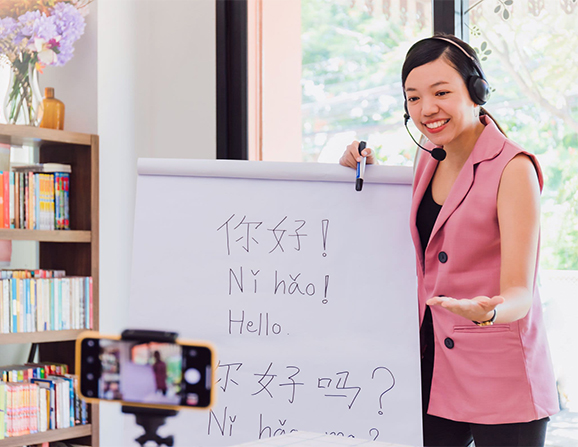 你好！
Nǐ hǎo！
Hello.
你好吗？
Nǐ hǎo ma？